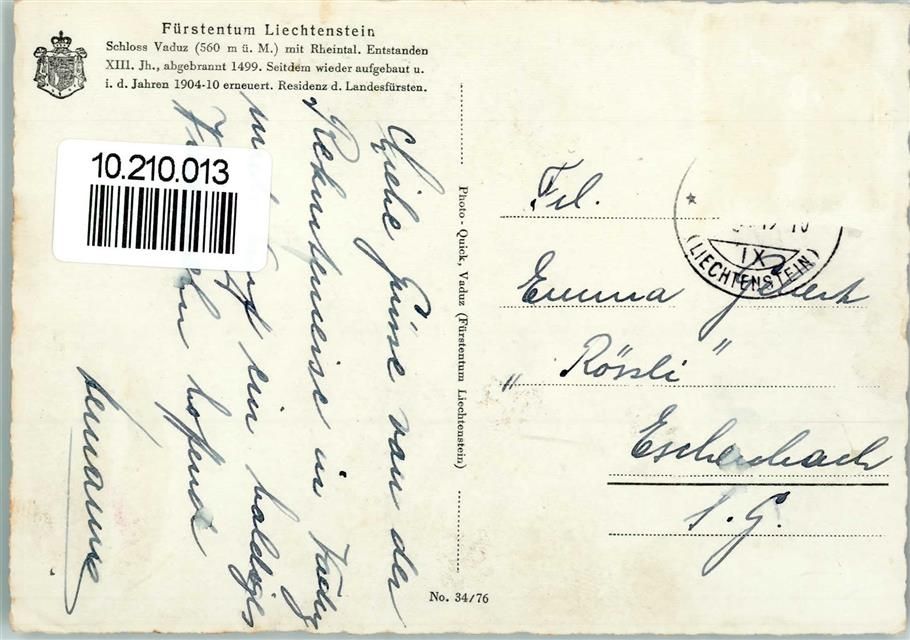 Fürstentum Liechtenstein
Schloss Vaduz (560 m ü. M.) mit Rheintal. Entstanden
XIII. Jh., abgebrannt 1499. Seitdem wieder aufgebaut u.
i. d. Jahren 1904-10 erneuert. Residenz d. Landesfürsten.
10.210.013
Liebe Grüsse von der
in
ein
hofend
Photo - Quick, Vaduz (Fürstentum Liechtenstein)
No. 34/76
IX
(LIECHTENSTEIN)
Frl.
Emma
„Rössli"
Eschenbach
S. G.